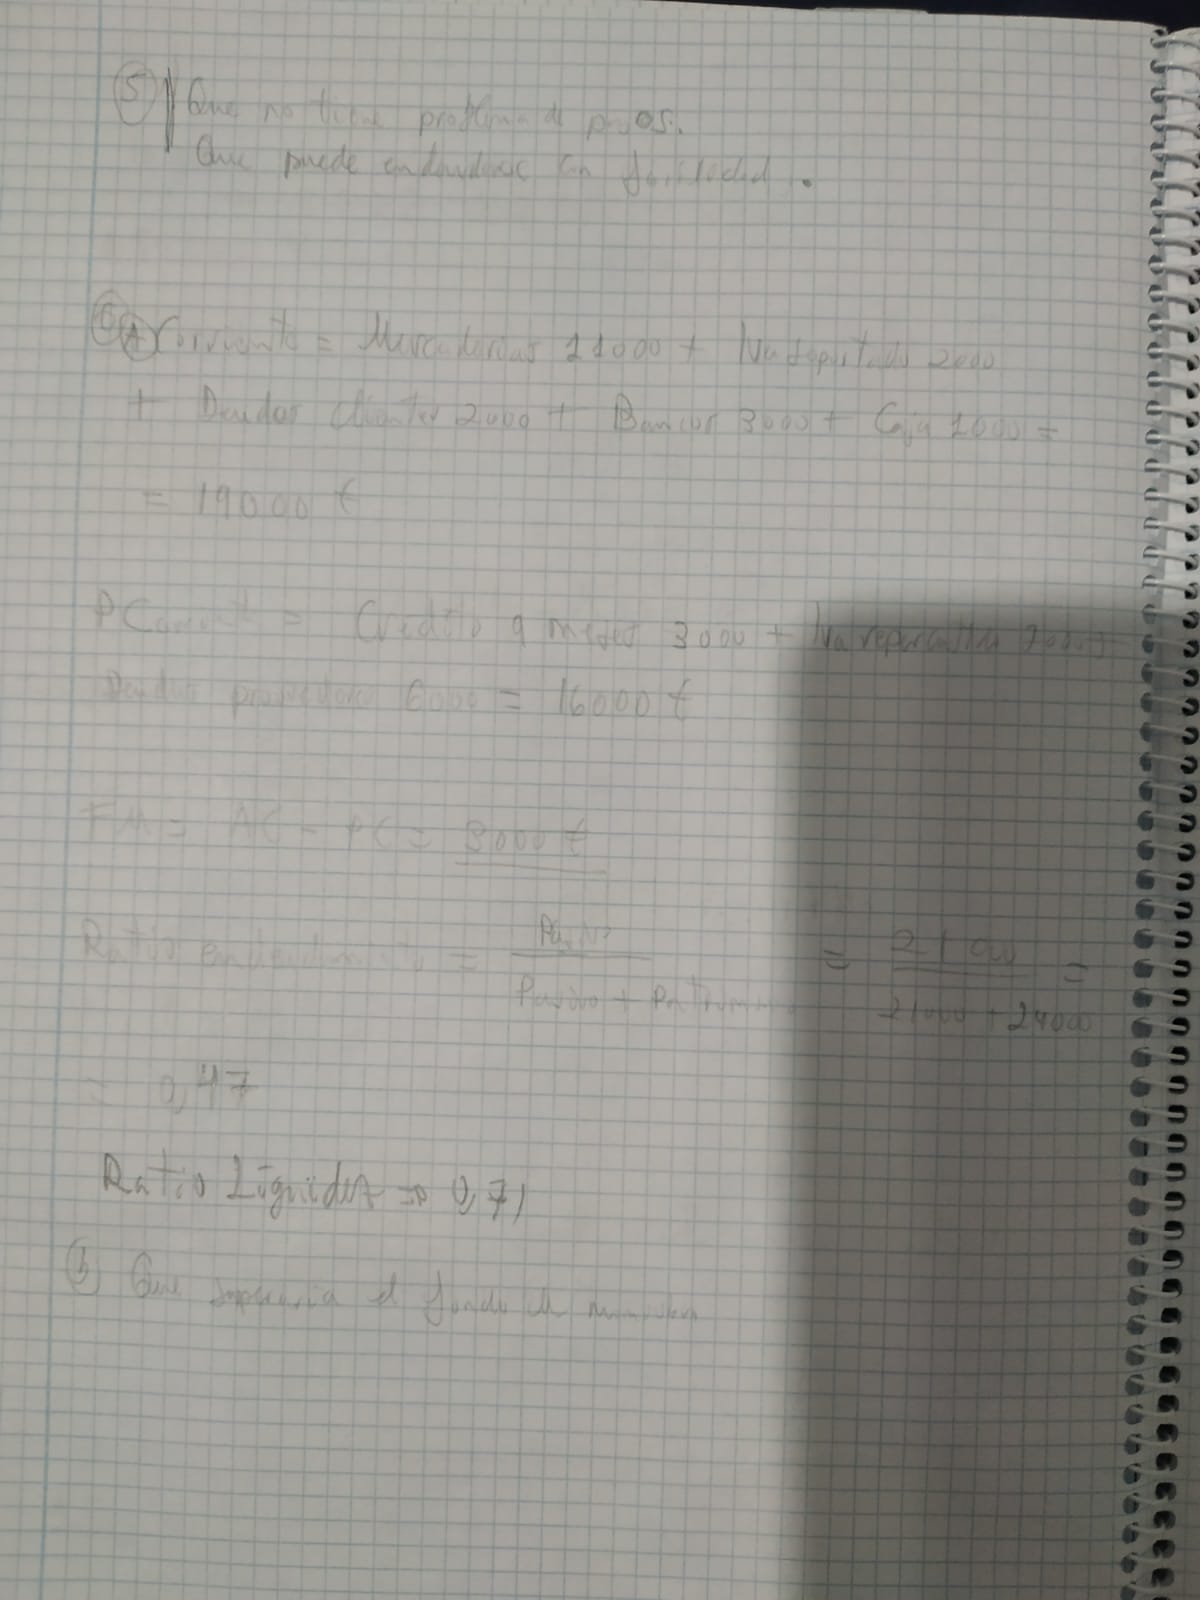 5 Que no tiene problema de pagos.
Que puede endeudarse con facilidad.
6 A Corriente = Mercaderías 11000 + Iva soportado 2000
+ Deudas clientes 2000 + Bancos 3000 + Caja 1000 =
= 19000 €
P Corriente = Credito 9 meses 3000 + Iva repercutido 7000 +
Deudas proveedores 6000 = 16000 €
FM = AC - PC = 3000 €
Ratio endeudamiento = Pasivo / Pasivo + Patrimonio = 21000 / 21000 + 24000 =
= 0,47
Ratio Liquidez => 0,71
b) Que el fondo de